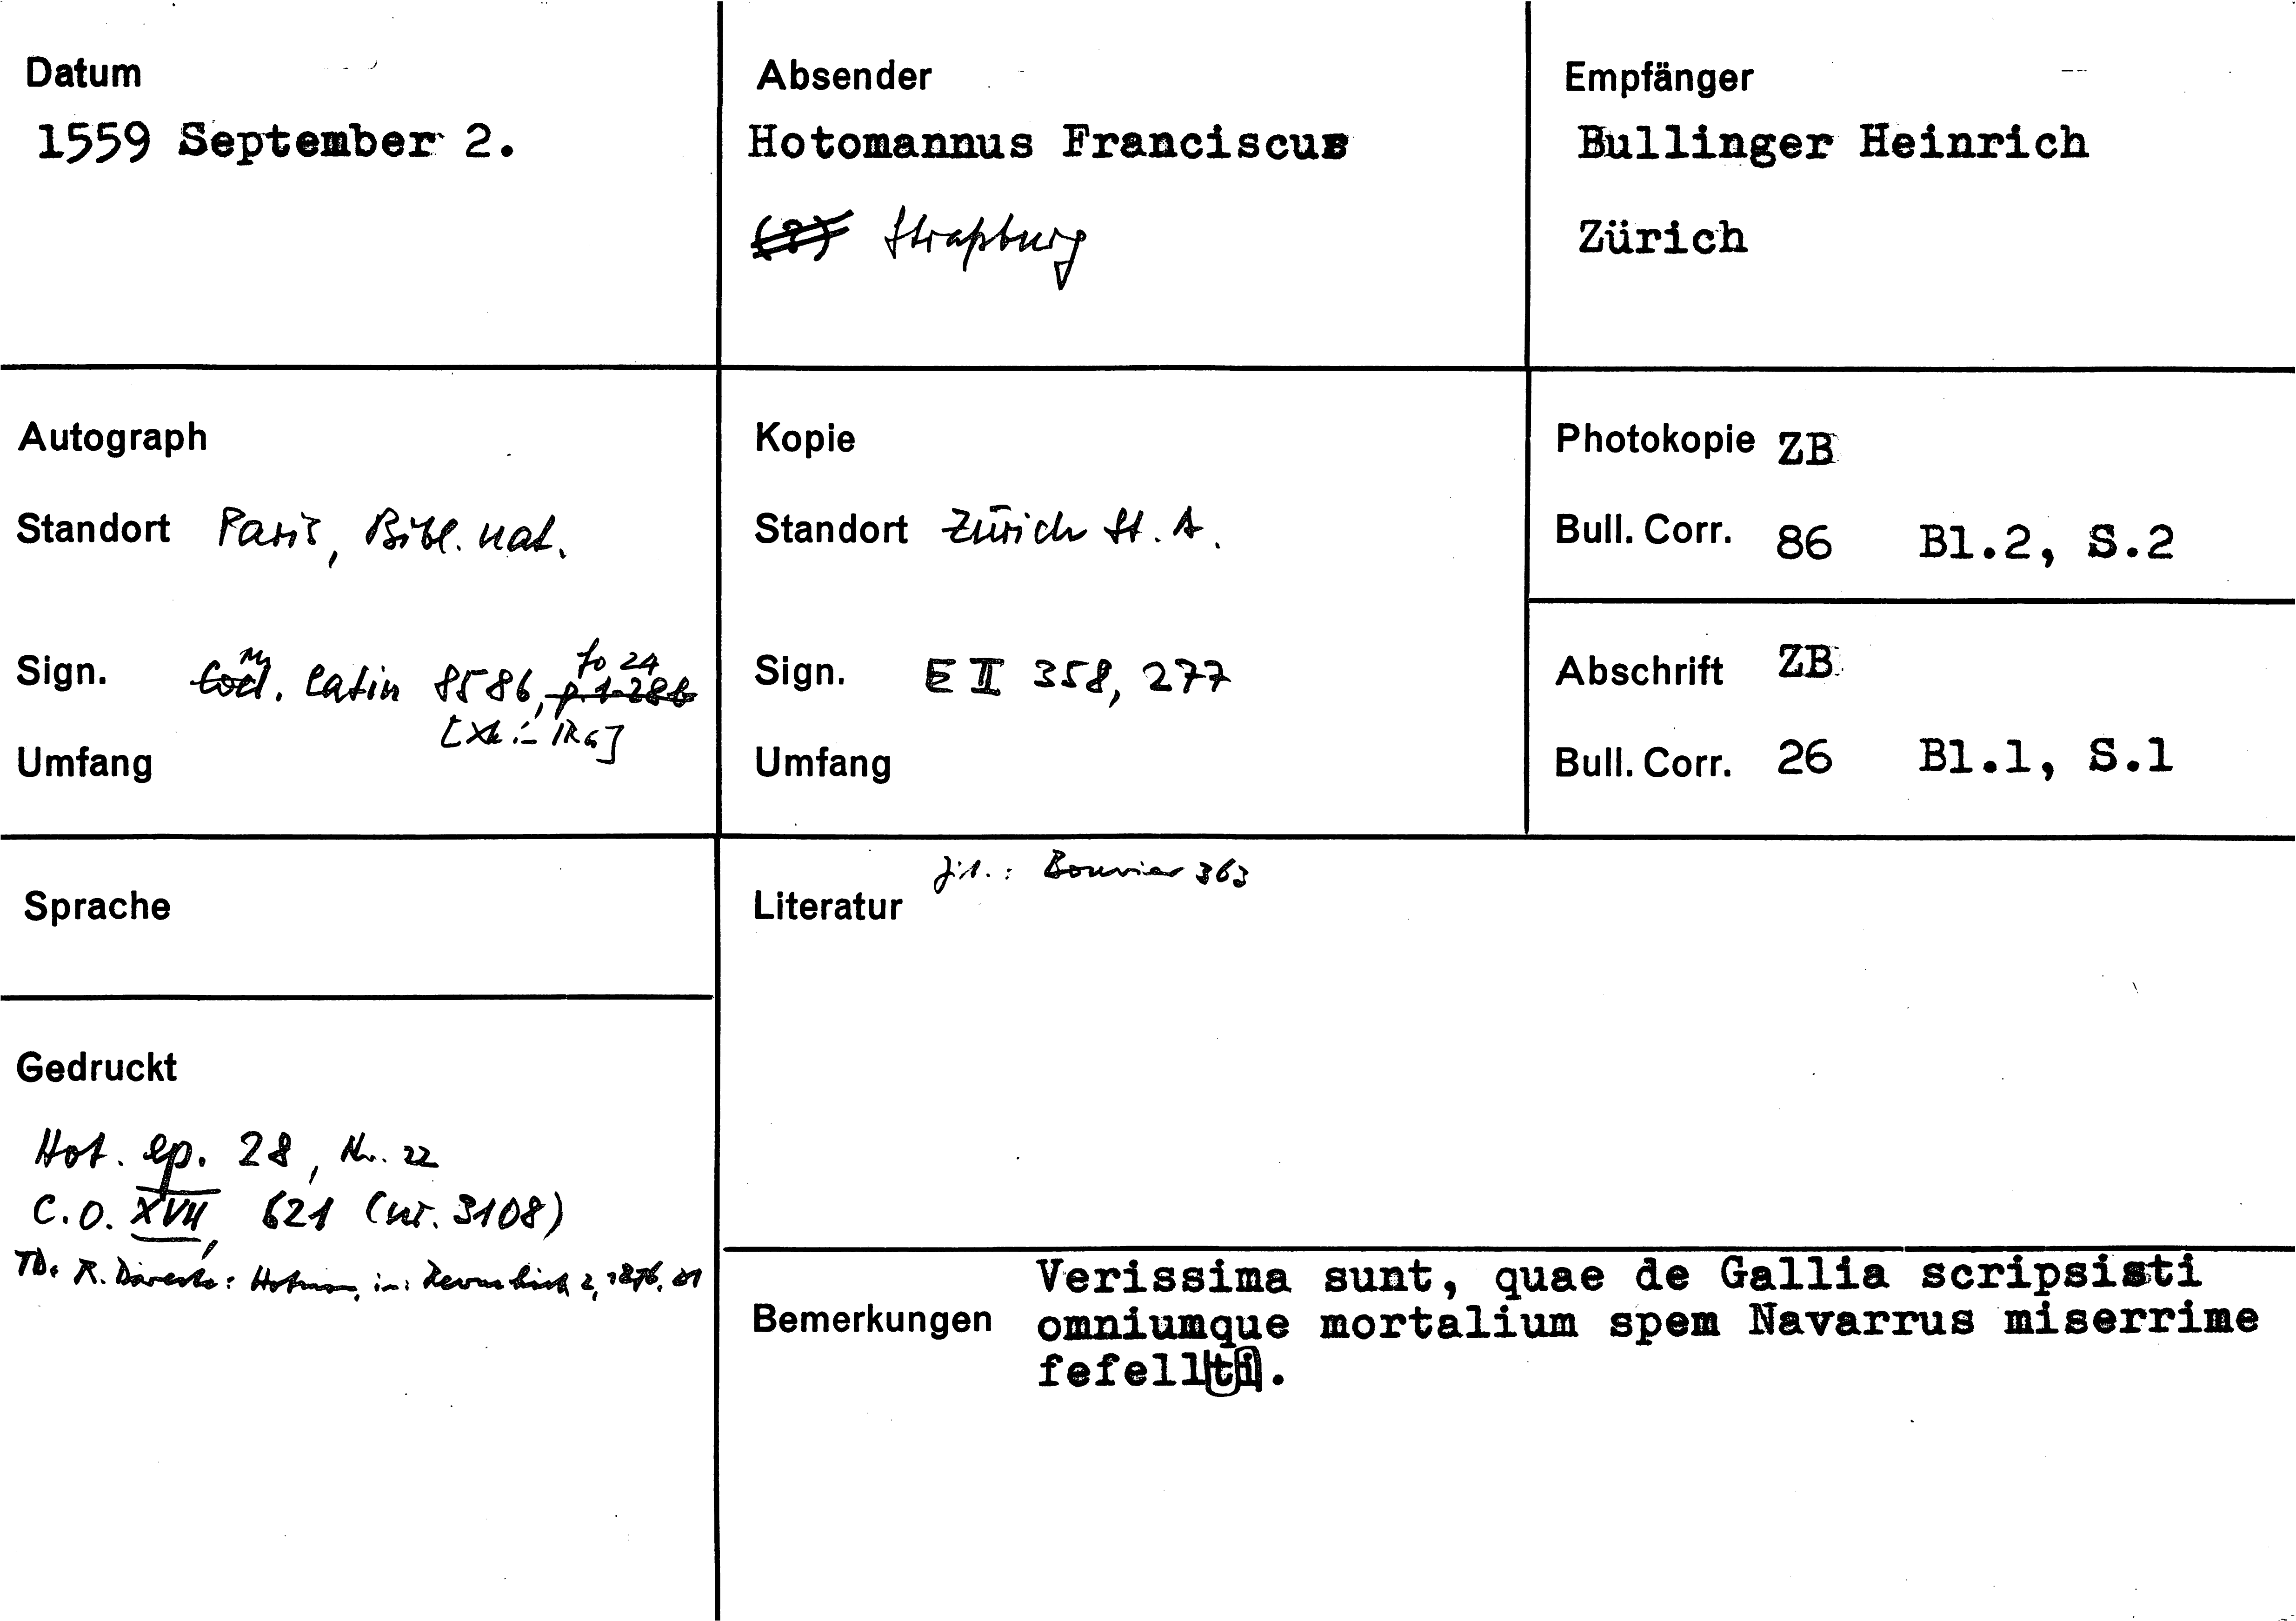 Datum
1559 September 2.
Absender
Hotomannus Franciscus
(?) Straßburg
Empfänger
Bullinger Heinrich
Zürich
Autograph
Standort Paris, Bibl. nat.
Sign. Cod. latin 8586, p. 1-286
fo 24
Umfang
Kopie
Standort Zürich St. A.
Sign. E II 358, 277
Umfang
Photokopie ZB
Bull. Corr. 86 Bl.2, S.2
Abschrift ZB
Bull. Corr. 26 Bl.1, S.1
Sprache
Literatur
Bouvier 363
Gedruckt
Hot. ep. 28, Nr. 22
C.O. XVII, 621 (nr. 3108)
TD. R. Dareste: Hotman, in: 2, 1876,
Bemerkungen
Verissima sunt, quae de Gallia scripsisti
omniumque mortalium spem Navarrus miserrime
fefellti.